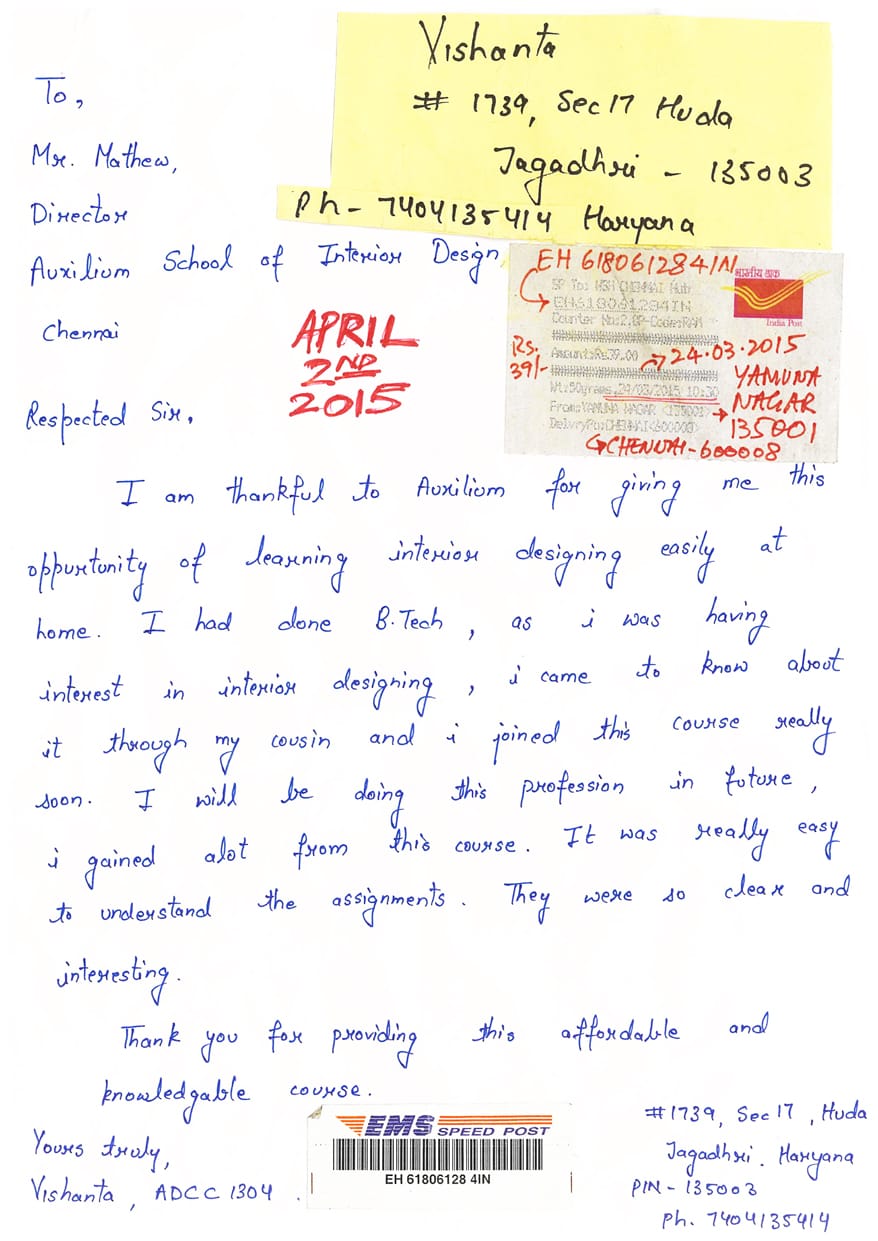 Vishanta
# 1739, Sec 17 Huda
Jagadhri - 135003
Ph - 7404135414 Haryana
To,
Mr. Mathew,
Director
Auxilium School of Interior Design,
Chennai
APRIL
2ND
2015
EH 618061284IN
भारतीय डाक
India Post
SP To: Chennai Hub
EH618061284IN
Counter No:2,OP-Code:RAM
Amount:Rs39.00
Rs.
39/-
24.03.2015
Wt:50grams,24/03/2015,10:30
From:YAMUNA NAGAR <135001>
YAMUNA
NAGAR
135001
CHENNAI-600008
Respected Sir,
I am thankful to Auxilium for giving me this
oppurtunity of learning interior designing easily at
home. I had done B.Tech , as i was having
interest in interior designing , i came to know about
it through my cousin and i joined this course really
soon. I will be doing this profession in future ,
i gained alot from this course. It was really easy
to understand the assignments. They were so clear and
interesting.
Thank you for providing this affordable and
knowledgable course.
Yours truly,
Vishanta , ADCC 1304 .
EMS SPEED POST
EH 61806128 4IN
#1739, Sec 17 , Huda
Jagadhri. Haryana
PIN - 135003
Ph. 7404135414